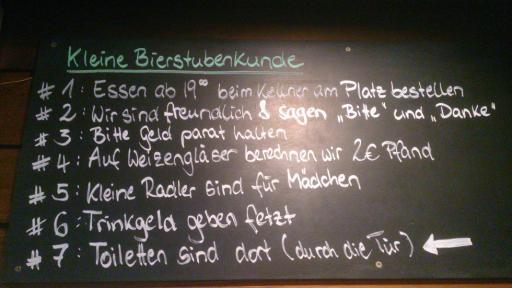 Kleine Bierstubenkunde
# 1: Essen ab 19⁰⁰ beim Kellner am Platz bestellen
# 2: Wir sind freundlich & sagen „Bitte“ und „Danke“
# 3: Bitte Geld parat halten
# 4: Auf Weizengläser berechnen wir 2€ Pfand
# 5: Kleine Radler sind für Mädchen
# 6: Trinkgeld geben fetzt
# 7: Toiletten sind dort (durch die Tür) ←